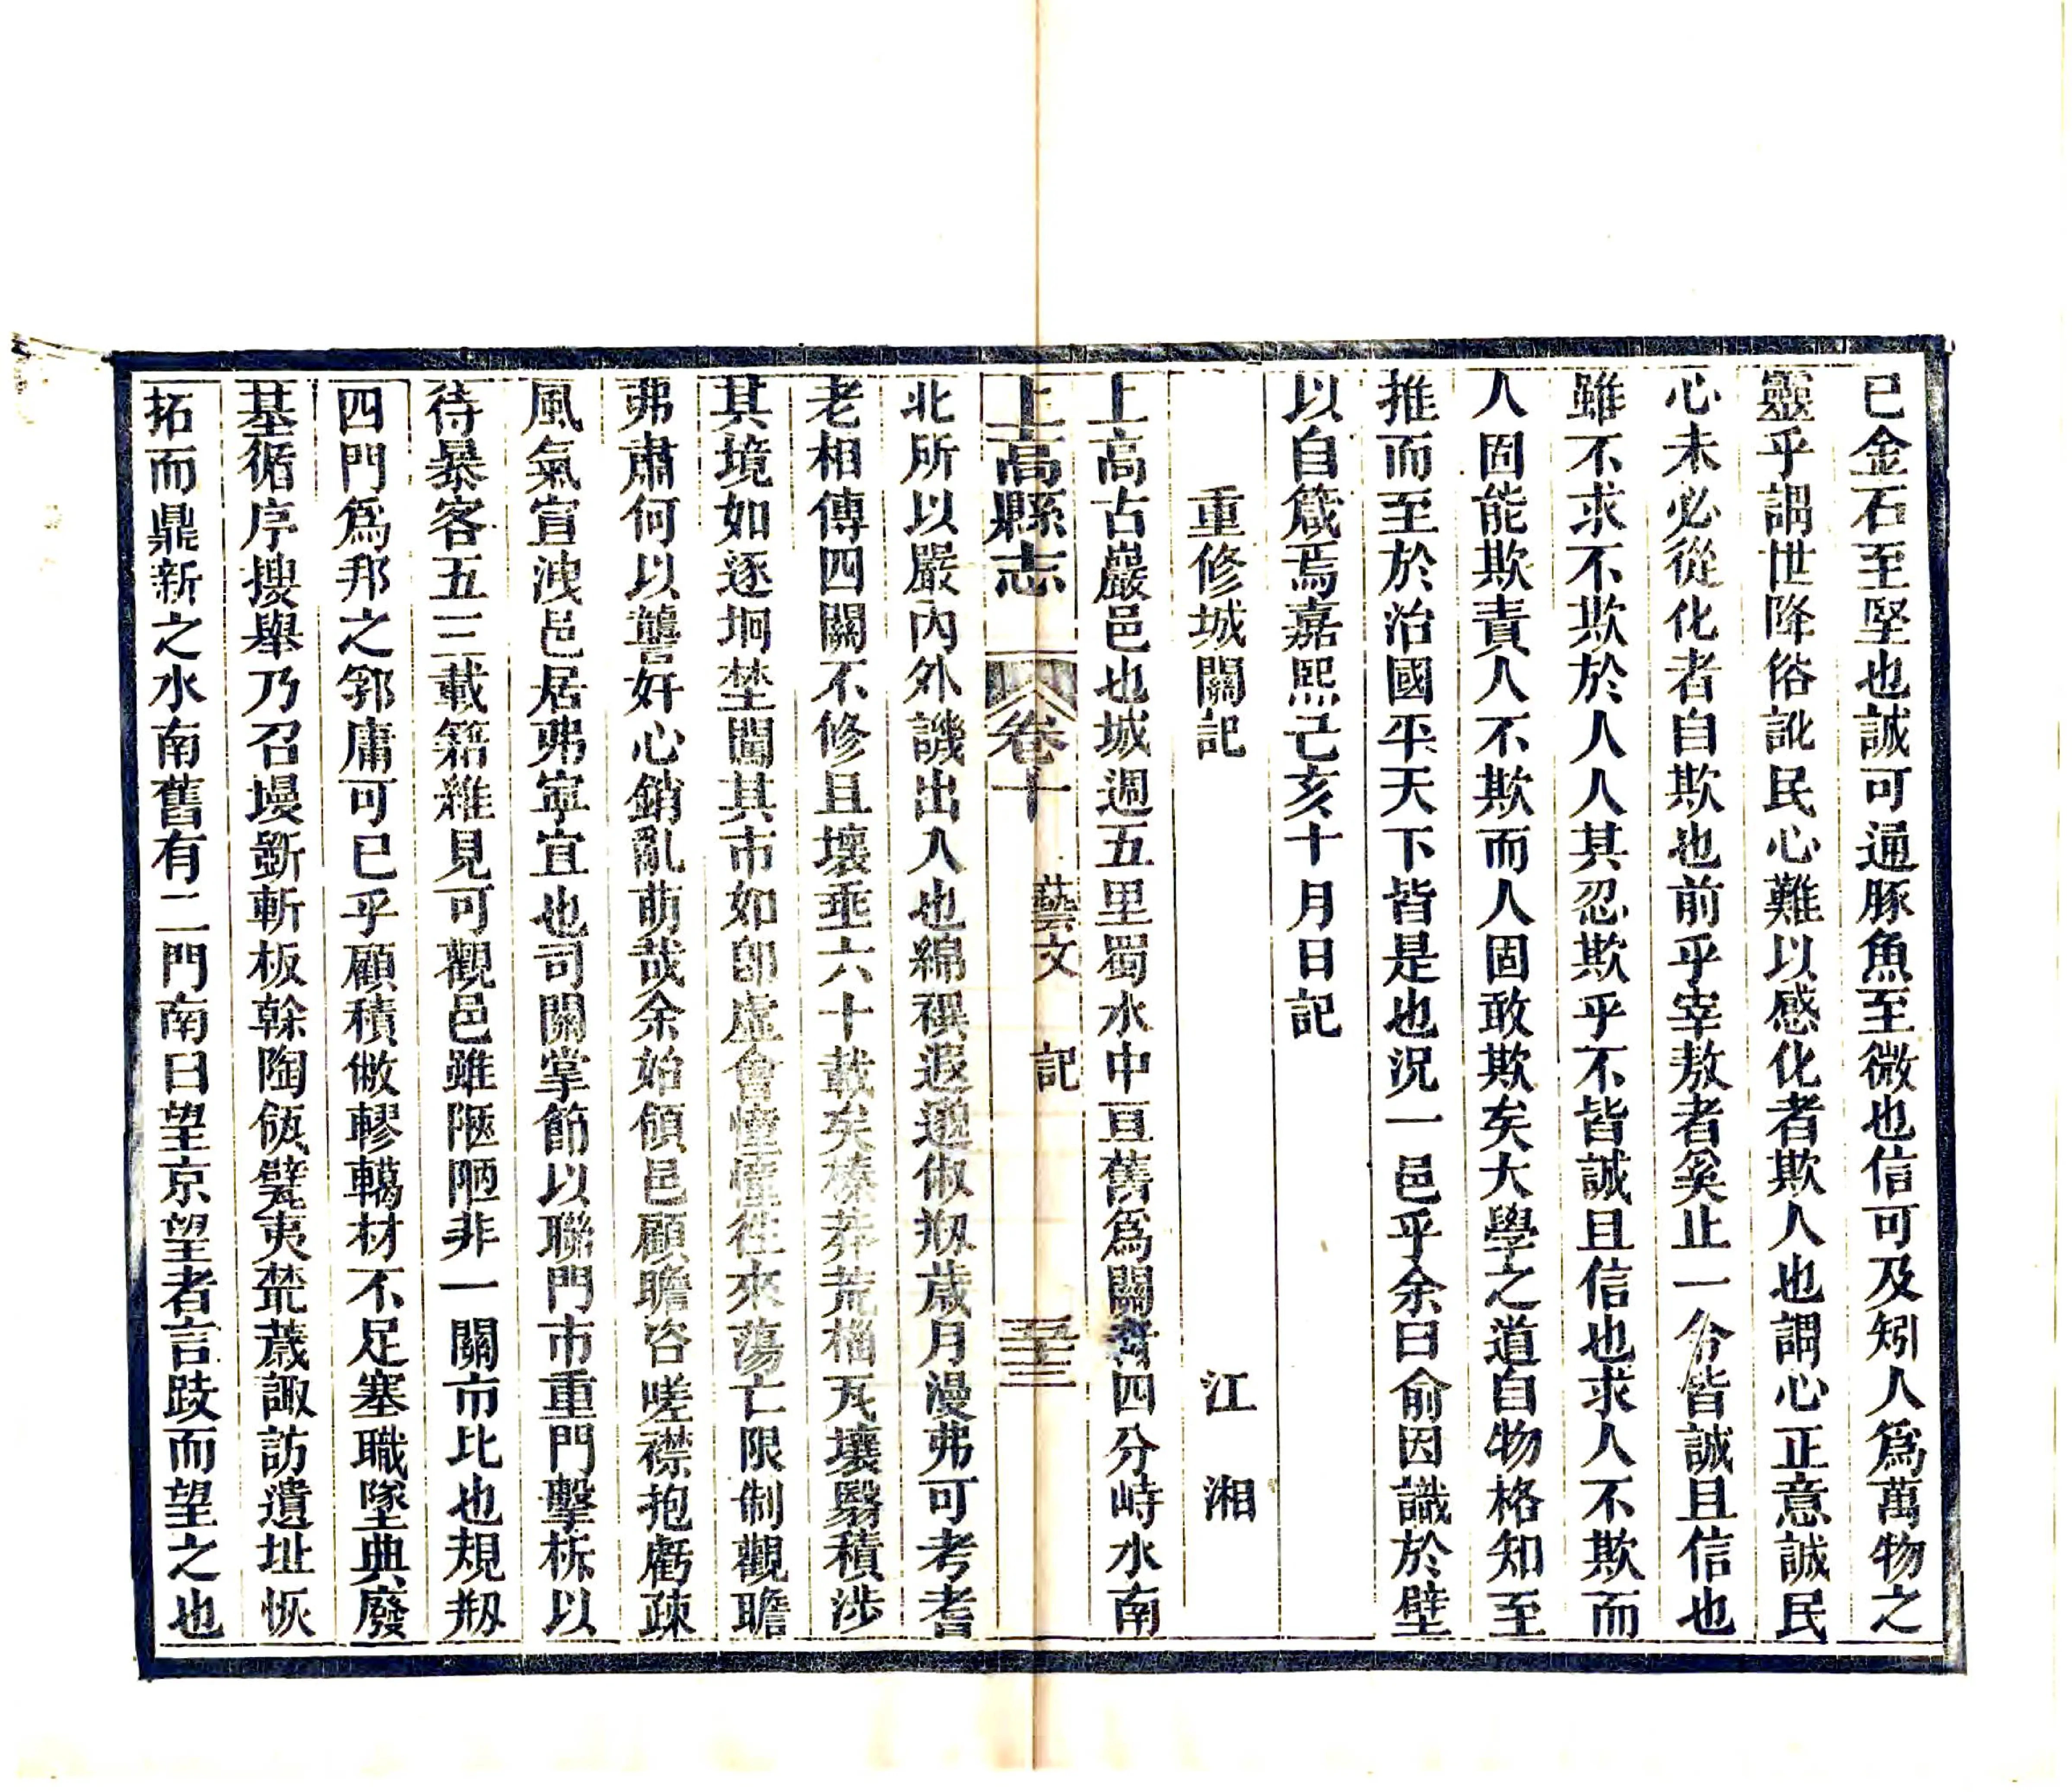 已金石至堅也誠可通豚魚至微也信可及矧人爲萬物之
靈乎謂世降俗訛民心難以感化者欺人也謂心正意誠民
心未必從化者自欺也前乎宰敖者奚止一今皆誠且信也
雖不求不欺於人人其忍欺乎不皆誠且信也求人不欺而
人固能欺責人不欺而人固敢欺矣大學之道自物格知至
推而至於治國平天下皆是也況一邑乎余曰俞因識於壁
以自箴焉嘉熙己亥十月日記
重修城關記 江湘
上高古巖邑也城週五里蜀水中亘舊爲關者四分峙水南
上高縣志 卷十 藝文 記 五十三
北所以嚴內外譏出入也綿禩遐邈俶剏歲月漫弗可考耆
老相傳四關不修且壞垂六十載矣榛莽荒榴瓦壤翳積涉
其境如逐坰埜闖其市如卽虛會憧憧往來蕩亡限制觀瞻
弗肅何以讋奸心銷亂萌哉余始領邑顧瞻咨嗟襟抱虧疎
風氣宣洩邑居弗寧宜也司關掌節以聯門市重門擊柝以
待暴客五三載籍雜見可觀邑雖陋陋非一關市比也規剏
四門爲邦之郛庸可已乎顧積敝轇轕材不足塞職墜典廢
基循序搜舉乃召墁斵斬板榦陶瓴甓夷榮蕆諏訪遺址恢
拓而鼎新之水南舊有二門南曰望京望者言跂而望之也